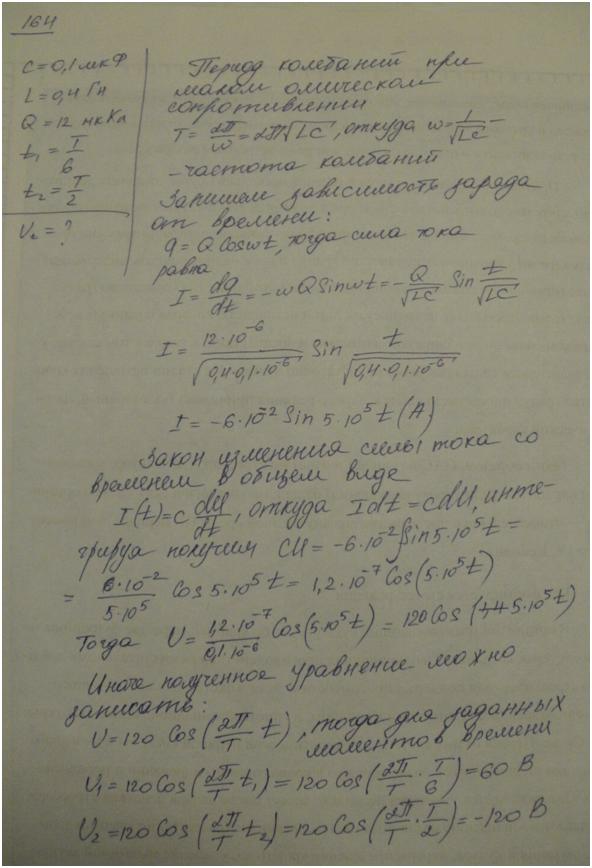 164
C = 0,1 мкФ
L = 0,4 Гн
Q = 12 мкКл
t₁ = T/6
t₂ = T/2
U₂ = ?
Период колебаний при
малом омическом
сопротивлении
T = 2π/ω = 2π√LC, откуда ω = 1/√LC –
– частота колебаний
Запишем зависимость заряда
от времени:
q = Q Cos ωt, тогда сила тока
равна
I = dq/dt = -ωQ Sin ωt = - Q/√LC Sin t/√LC
I = 12·10⁻⁶/√0,4·0,1·10⁻⁶ Sin t/√0,4·0,1·10⁻⁶
I = -6·10⁻² Sin 5·10⁵t (A)
Закон изменения силы тока со
временем в общем виде
I(t) = c dU/dt, откуда Idt = cdU, инте-
грируя получим CU = -6·10⁻²∫Sin 5·10⁵t =
= 6·10⁻²/5·10⁵ Cos 5·10⁵t = 1,2·10⁻⁷ Cos(5·10⁵t)
Тогда U = 1,2·10⁻⁷/0,1·10⁻⁶ Cos(5·10⁵t) = 120 Cos (5·10⁵t)
Иначе полученное уравнение можно
записать:
U = 120 Cos(2π/T t), тогда для заданных
моментов времени
U₁ = 120 Cos(2π/T t₁) = 120 Cos(2π/T · T/6) = 60 В
U₂ = 120 Cos(2π/T t₂) = 120 Cos(2π/T · T/2) = -120 В